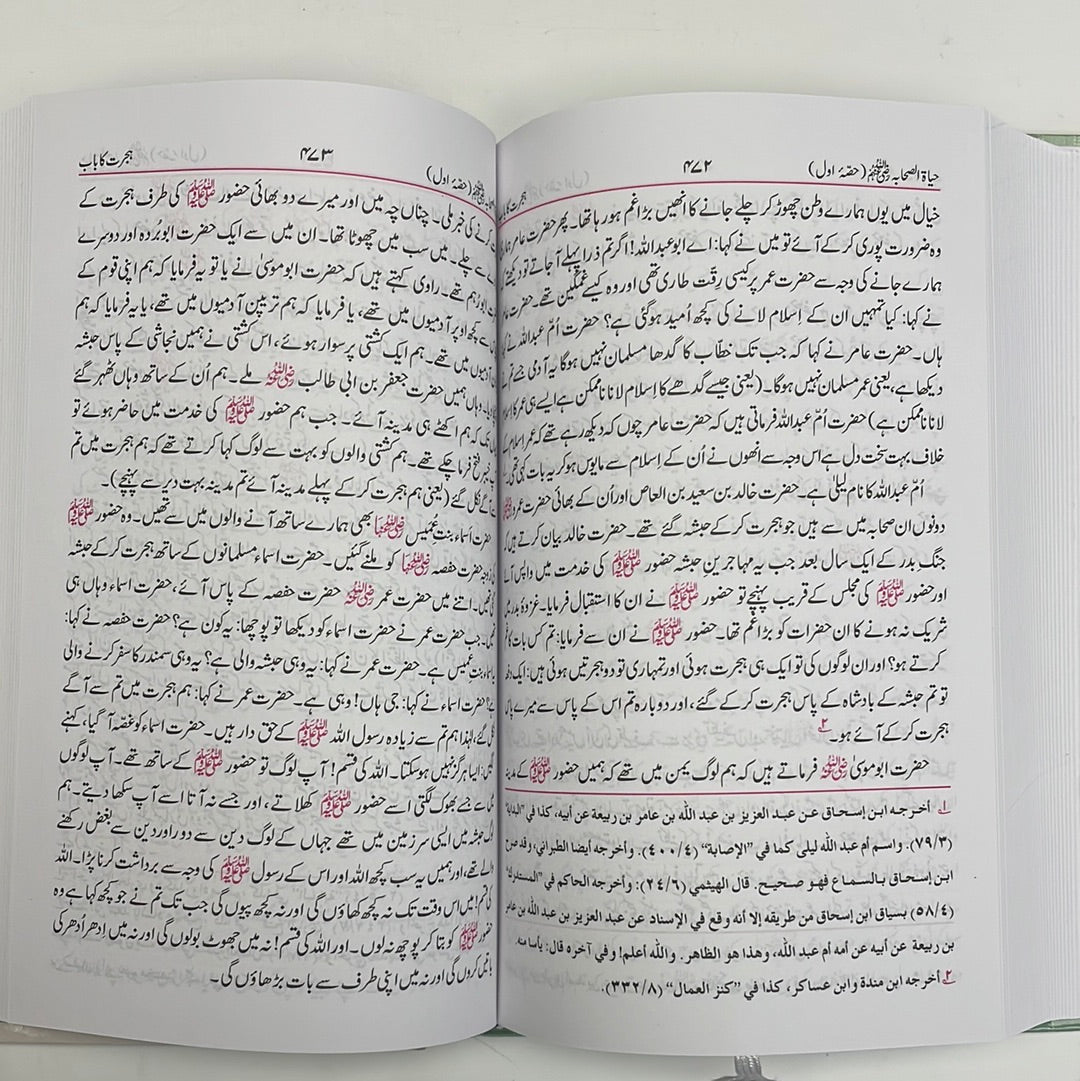 حیاۃ الصحابہ رضی اللہ عنہم (حصّۂ اول) ۴۷۲
خیال میں یوں ہمارے وطن چھوڑ کر چلے جانے کا انھیں بڑا غم ہو رہا تھا۔ پھر حضرت عامر
وہ ضرورت پوری کر کے آئے تو میں نے کہا: اے ابو عبد اللہ! اگر تم ذرا پہلے آ جاتے تو دیکھتے
ہمارے جانے کی وجہ سے حضرت عمر پر کیسی رِقّت طاری تھی اور وہ کیسے غمگین تھے۔ حضرت
نے کہا: کیا تمہیں ان کے اِسلام لانے کی کچھ اُمید ہو گئی ہے؟ حضرت اُمّ عبداللہ نے کہا
ہاں۔ حضرت عامر نے کہا کہ جب تک خطّاب کا گدھا مسلمان نہیں ہوگا یہ آدمی جسے تم نے
دیکھا ہے، یعنی عمر مسلمان نہیں ہوگا۔ (یعنی جیسے گدھے کا اِسلام لانا ناممکن ہے ایسے ہی عمر کا اِسلام
لانا ناممکن ہے) حضرت اُمّ عبداللہ فرماتی ہیں کہ حضرت عامر چوں کہ دیکھ رہے تھے کہ عمر اِسلام کے
خلاف بہت سخت دل ہے اس وجہ سے انھوں نے اُن کے اِسلام سے مایوس ہو کر یہ بات کہی تھی۔
اُمّ عبداللہ کا نام لیلیٰ ہے۔ حضرت خالد بن سعید بن العاص اور اُن کے بھائی حضرت عمرو
دونوں ان صحابہ میں سے ہیں جو ہجرت کر کے حبشہ گئے تھے۔ حضرت خالد بیان کرتے ہیں
جنگِ بدر کے ایک سال بعد جب یہ مہاجرینِ حبشہ حضور ﷺ کی خدمت میں واپس آئے
اور حضور ﷺ کی مجلس کے قریب پہنچے تو حضور ﷺ نے ان کا استقبال فرمایا۔ غزوۂ بدر میں
شریک نہ ہونے کا ان حضرات کو بڑا غم تھا۔ حضور ﷺ نے ان سے فرمایا: تم کس بات کا غم
کرتے ہو؟ اور ان لوگوں کی تو ایک ہی ہجرت ہوئی اور تمہاری تو دو ہجرتیں ہوئی ہیں: ایک دفعہ
تو تم حبشہ کے بادشاہ کے پاس ہجرت کر کے گئے، اور دوبارہ تم اس کے پاس سے میرے پاس
ہجرت کر کے آئے ہو۔ ۲
حضرت ابو موسیٰ رضی اللہ عنہ فرماتے ہیں کہ ہم لوگ یمن میں تھے کہ ہمیں حضور ﷺ کے مدینہ
۱ـ أخرجه ابن إسحاق عن عبد العزيز بن عبد الله بن عامر بن ربيعة عن أبيه، كذا في "البداية"
(۷۹/۳). واسم أم عبد الله ليلى كما في "الإصابة" (۴۰۰/۴). وأخرجه أيضا الطبراني، وقد صرح
ابن إسحاق بالسماع فهو صحيح. قال الهيثمي (۲۴/۶): وأخرجه الحاكم في "المستدرك"
(۵۸/۴) بسياق ابن إسحاق من طريقه إلا أنه وقع في الإسناد عن عبد العزيز بن عبد الله بن عامر
بن ربيعة عن أبيه عن أمه أم عبد الله، وهذا هو الظاهر. والله أعلم! وفي آخره قال: يأسا منه.
۲ـ أخرجه ابن مندة وابن عساكر، كذا في "كنز العمال" (۳۳۲/۸).
(حصّۂ اول) ۴۷۳ ہجرت کا باب
کرنے کی خبر ملی۔ چناں چہ میں اور میرے دو بھائی حضور ﷺ کی طرف ہجرت کے
سے چلے۔ میں سب میں چھوٹا تھا۔ ان میں سے ایک حضرت ابو بُردہ اور دوسرے
ابو رُہم تھے۔ راوی کہتے ہیں کہ حضرت ابو موسیٰ نے یا تو یہ فرمایا کہ ہم اپنی قوم کے
سے کچھ اوپر آدمیوں میں تھے، یا فرمایا کہ ہم ترپین آدمیوں میں تھے، یا یہ فرمایا کہ ہم
آدمیوں میں تھے۔ ہم ایک کشتی پر سوار ہوئے، اس کشتی نے ہمیں نجاشی کے پاس حبشہ
دیا۔ وہاں ہمیں حضرت جعفر بن ابی طالب رضی اللہ عنہ ملے۔ ہم اُن کے ساتھ وہاں ٹھہر گئے
تک کہ ہم اکٹھے ہی مدینہ آئے۔ جب ہم حضور ﷺ کی خدمت میں حاضر ہوئے تو
فتح فرما چکے تھے۔ ہم کشتی والوں کو بہت سے لوگ کہا کرتے تھے کہ ہم ہجرت میں تم
سے آگے نکل گئے (یعنی ہم ہجرت کر کے پہلے مدینہ آئے تم مدینہ بہت دیر سے پہنچے)۔
حضرت اَسماء بنتِ عُمیس رضی اللہ عنہا بھی ہمارے ساتھ آنے والوں میں سے تھیں۔ وہ حضور ﷺ
کی زوجہ حضرت حفصہ رضی اللہ عنہا کو ملنے گئیں۔ حضرت اسماء مسلمانوں کے ساتھ ہجرت کر کے حبشہ
تھیں۔ اتنے میں حضرت عمر رضی اللہ عنہ حضرت حفصہ کے پاس آئے، حضرت اسماء وہاں ہی
تھیں۔ جب حضرت عمر نے حضرت اسماء کو دیکھا تو پوچھا: یہ کون ہے؟ حضرت حفصہ نے کہا:
اسماء بنتِ عُمیس ہے۔ حضرت عمر نے کہا: یہ وہی حبشہ والی ہے؟ یہ وہی سمندر کا سفر کرنے والی
ہے؟ حضرت اسماء نے کہا: جی ہاں! وہی ہے۔ حضرت عمر نے کہا: ہم ہجرت میں تم سے آگے
نکل گئے، لہٰذا ہم تم سے زیادہ رسول اللہ ﷺ کے حق دار ہیں۔ حضرت اسماء کو غصّہ آ گیا، کہنے
لگیں: ایسا ہرگز نہیں ہو سکتا۔ اللہ کی قسم! آپ لوگ تو حضور ﷺ کے ساتھ تھے۔ آپ لوگوں
میں سے جسے بھوک لگتی اُسے حضور ﷺ کھلاتے، اور جسے نہ آتا اسے آپ سکھا دیتے۔ ہم
حبشہ میں ایسی سرزمین میں تھے جہاں کے لوگ دین سے دور اور دین سے بغض رکھنے
والے تھے، اور ہمیں یہ سب کچھ اللہ اور اس کے رسول ﷺ کی وجہ سے برداشت کرنا پڑا۔ اللہ
کی قسم! میں اس وقت تک نہ کچھ کھاؤں گی اور نہ کچھ پیوں گی جب تک تم نے جو کچھ کہا ہے وہ
حضور ﷺ کو بتا کر پوچھ نہ لوں۔ اور اللہ کی قسم! نہ میں جھوٹ بولوں گی اور نہ میں اِدھر اُدھر کی
باتیں کروں گی اور نہ میں اپنی طرف سے بات بڑھاؤں گی۔